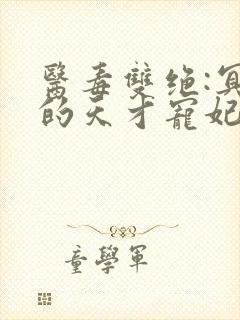 醫毒雙绝:冥
的天才寵妃
童學軍